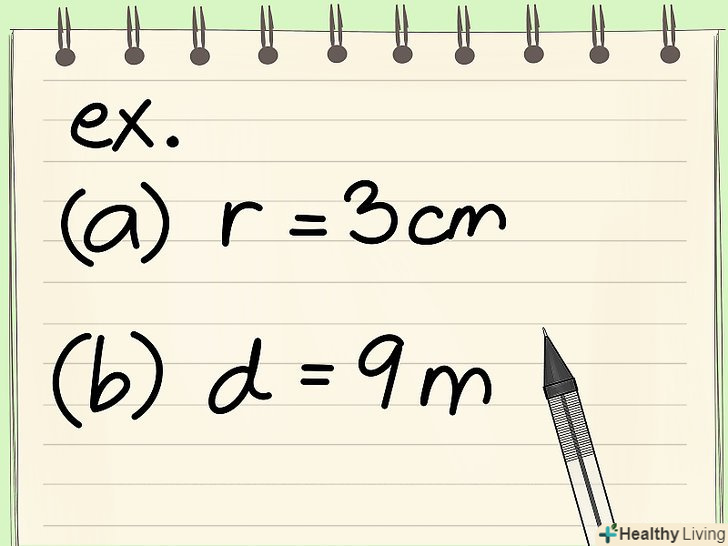 ex.
(a) r = 3cm
(b) d = 9m
Healthy Living